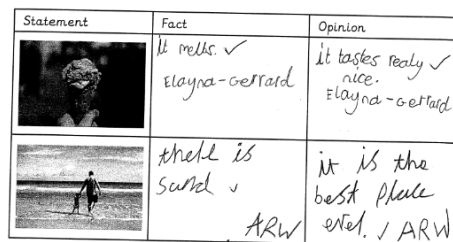 Statement
Fact
Opinion
it melts. ✓
Elayna-Gerrard
it tastes realy ✓
nice.
Elayna-Gerrard
thell is
sand ✓
ARW
it is the
best place
evel. ✓ ARW